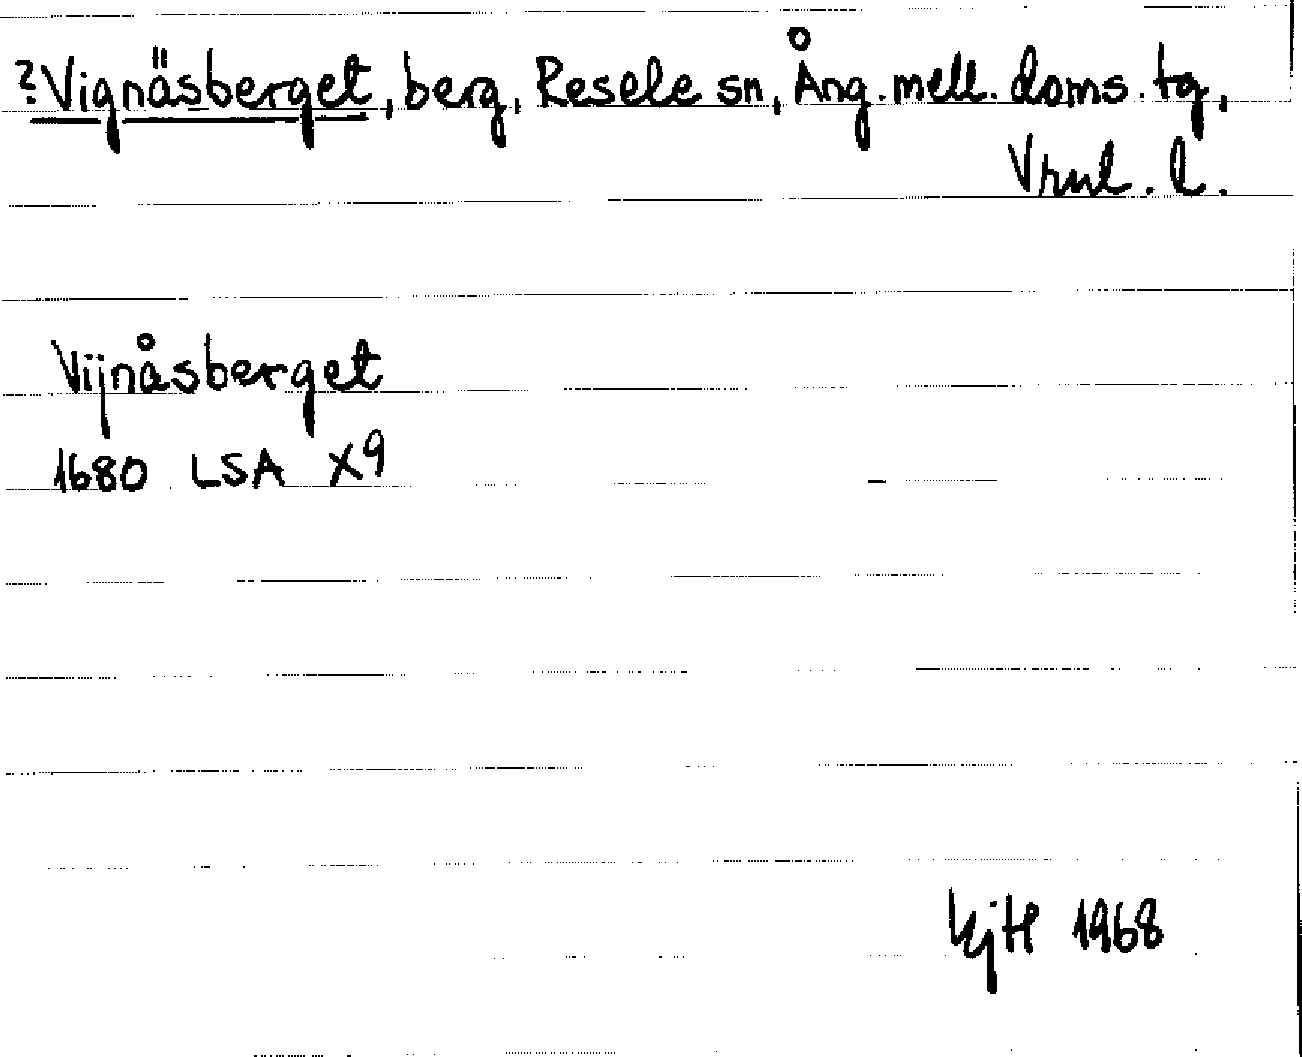 ?Vignäsberget, berg, Resele sn, Ång. mell. doms. tg,
Vrnl. l.
Vijnåsberget
1680 LSA X9
KjH 1968